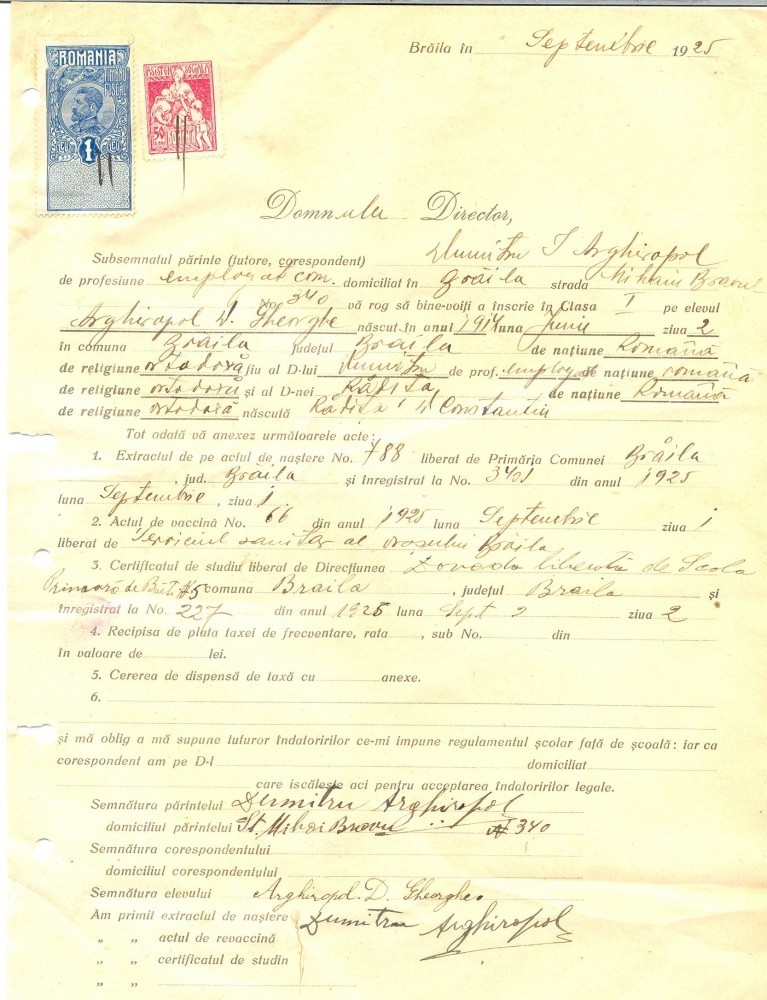 Brăila în Septembrie 1925
ROMANIA
TIMBRU FISCAL
1 LEU
ASISTENȚA SOCIALĂ
50
Domnule Director,
Subsemnatul părinte (tutore, corespondent) Dumitru I Arghiropol
de profesiune emplogat com. domiciliat în Brăila strada Mihaiu Bravul
No. 340 vă rog să bine-voiți a înscrie în Clasa I pe elevul
Arghiropol D. Gheorghe născut în anul 1914 luna Juniu ziua 2
în comuna Brăila județul Brăila de națiune Română
de religiune ortodoxă fiu al D-lui Dumitru de prof. emplogat de națiune română
de religiune ortodoxă și al D-nei Rădița de națiune Română
de religiune ortodoxă născută Rădița D Constantin
Tot odată vă anexez următoarele acte:
1. Extractul de pe actul de naștere No. 788 liberat de Primăria Comunei Brăila
, jud. Brăila și înregistrat la No. 3401 din anul 1925
luna Septembrie, ziua 1
2. Actul de vaccină No. 66 din anul 1925 luna Septembrie ziua 1
liberat de Serviciul sanitar al orașului Brăila
3. Certificatul de studiu liberat de Direcțiunea Dovada liberată de Scola
Primară de Băeți #5 comuna Braila, județul Braila și
înregistrat la No. 227 din anul 1925 luna Sept 2 ziua 2
4. Recipisa de plata taxei de frecventare, rata , sub No. din
în valoare de lei.
5. Cererea de dispensă de taxă cu anexe.
6.
și mă oblig a mă supune tuturor îndatoririlor ce-mi impune regulamentul școlar față de școală: iar ca
corespondent am pe D-l domiciliat
care iscălește aci pentru acceptarea îndatoririlor legale.
Semnătura părintelui Dumitru Arghiropol
domiciliul părintelui St. Mihai Bravu N 340
Semnătura corespondentului
domiciliul corespondentului
Semnătura elevului Arghiropol. D. Gheorghe
Am primit extractul de naștere Dumitru Arghiropol
„ „ actul de revaccină
„ „ certificatul de studiu
„ „